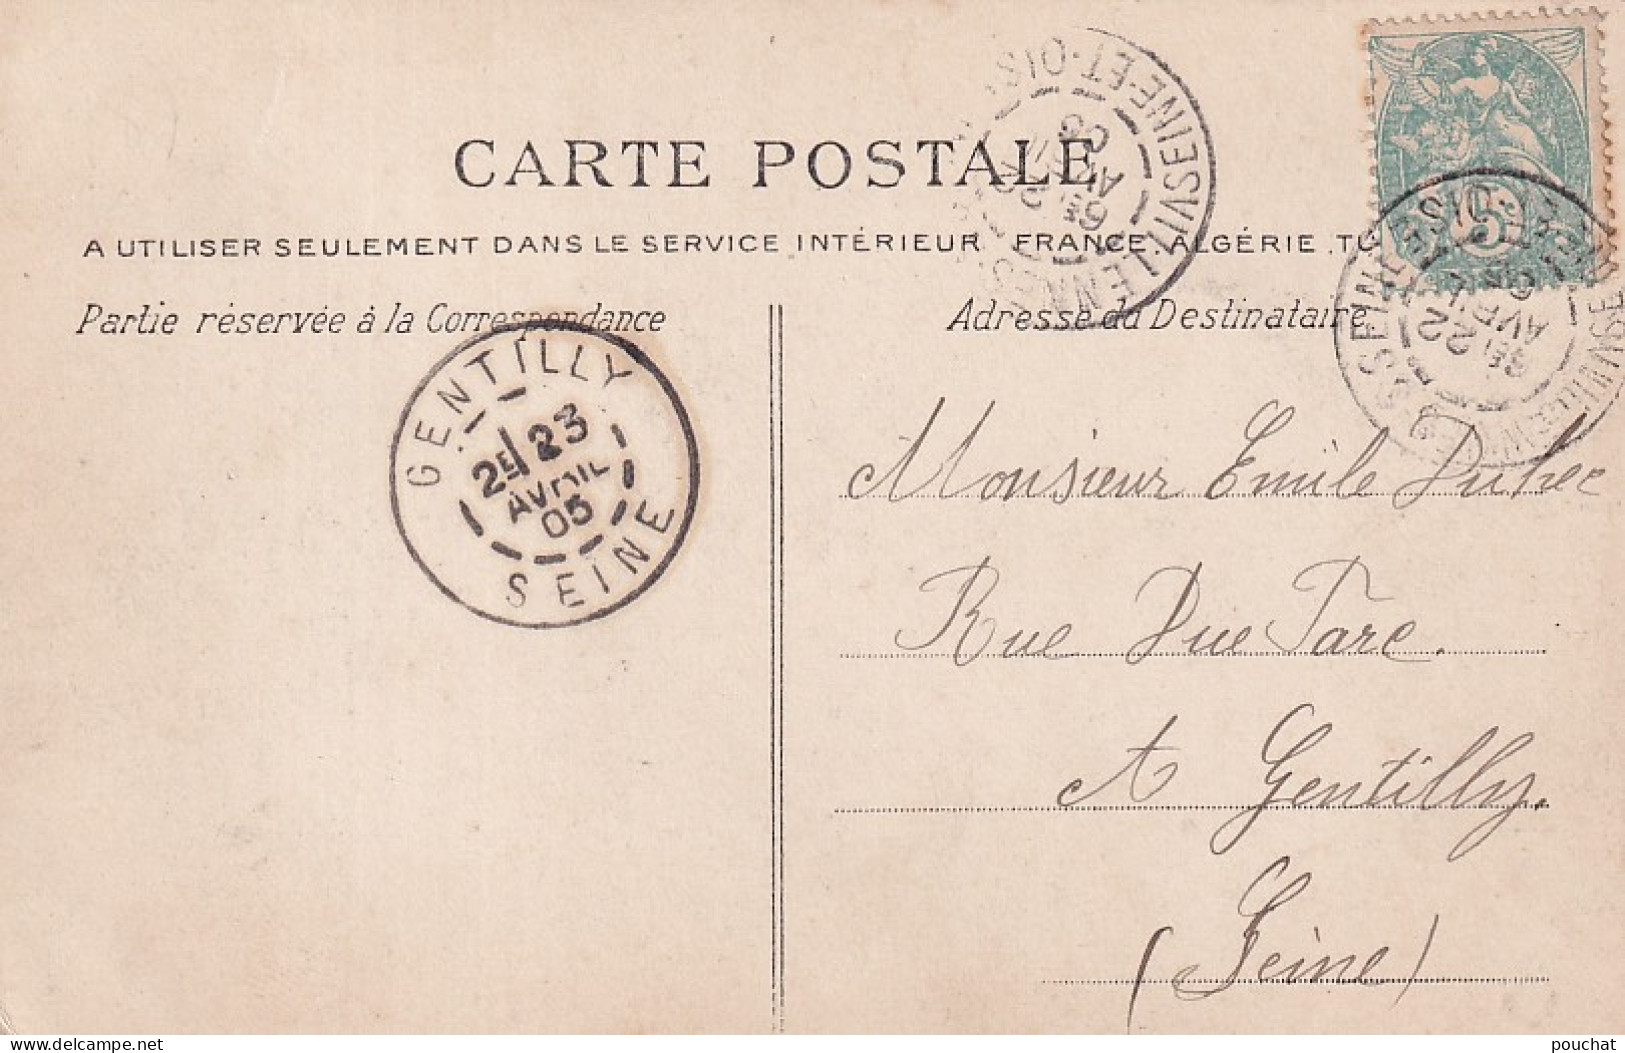 CARTE POSTALE
A UTILISER SEULEMENT DANS LE SERVICE INTÉRIEUR FRANCE, ALGÉRIE, TU
Partie réservée à la Correspondance
Adresse du Destinataire
GENTILLY
2E 23
AVRIL
05
SEINE
SEINE-ET-OISE
AVRIL
05
5c
22
AVRIL
05
Monsieur Emile Dubec
Rue Du Parc.
A Gentilly.
(Seine)
pouchat